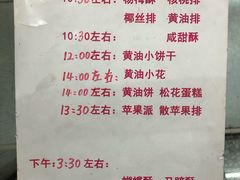 10:30左右: 杨梅酥 核桃排
椰丝排 黄油排
10:30左右: 咸甜酥
12:00左右: 黄油小饼干
14:00左右: 黄油小花
14:00左右: 黄油饼 松花蛋糕
13:30左右: 苹果派 散苹果排
下午: 3:30左右:
蝴蝶酥 马蹄酥